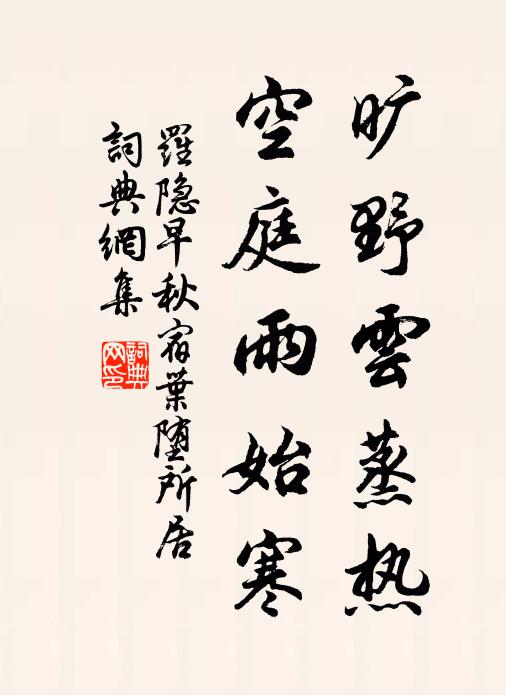 旷野雲蒸热
空庭雨始寒
羅隐早秋宿葉堕所居
詞典網集
詞典网印